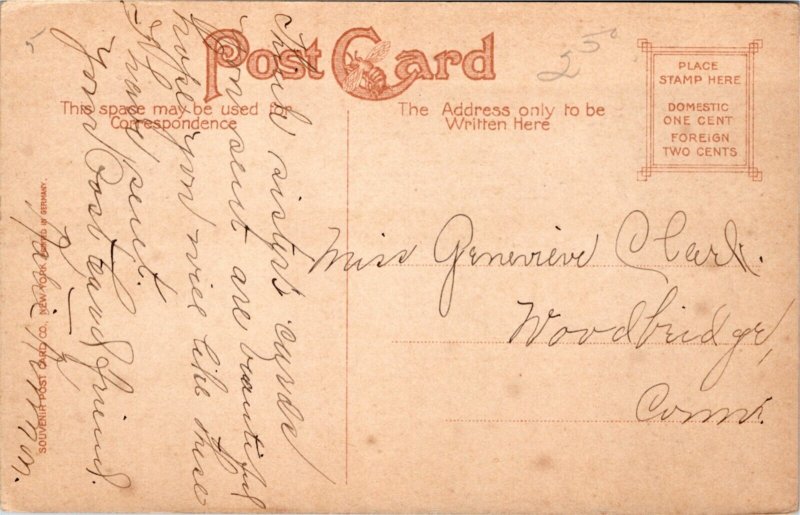 Post Card
This space may be used for
Correspondence
The Address only to be
Written Here
PLACE
STAMP HERE
DOMESTIC
ONE CENT
FOREIGN
TWO CENTS
25¢
5
Miss Genevieve Clark.
Woodbridge,
Conn.
Think sister's cards
you sent are beautiful
hope you will like these
I have sent.
Your Post Card friend.
SOUVENIR POST CARD CO. NEW YORK
GERMANY.